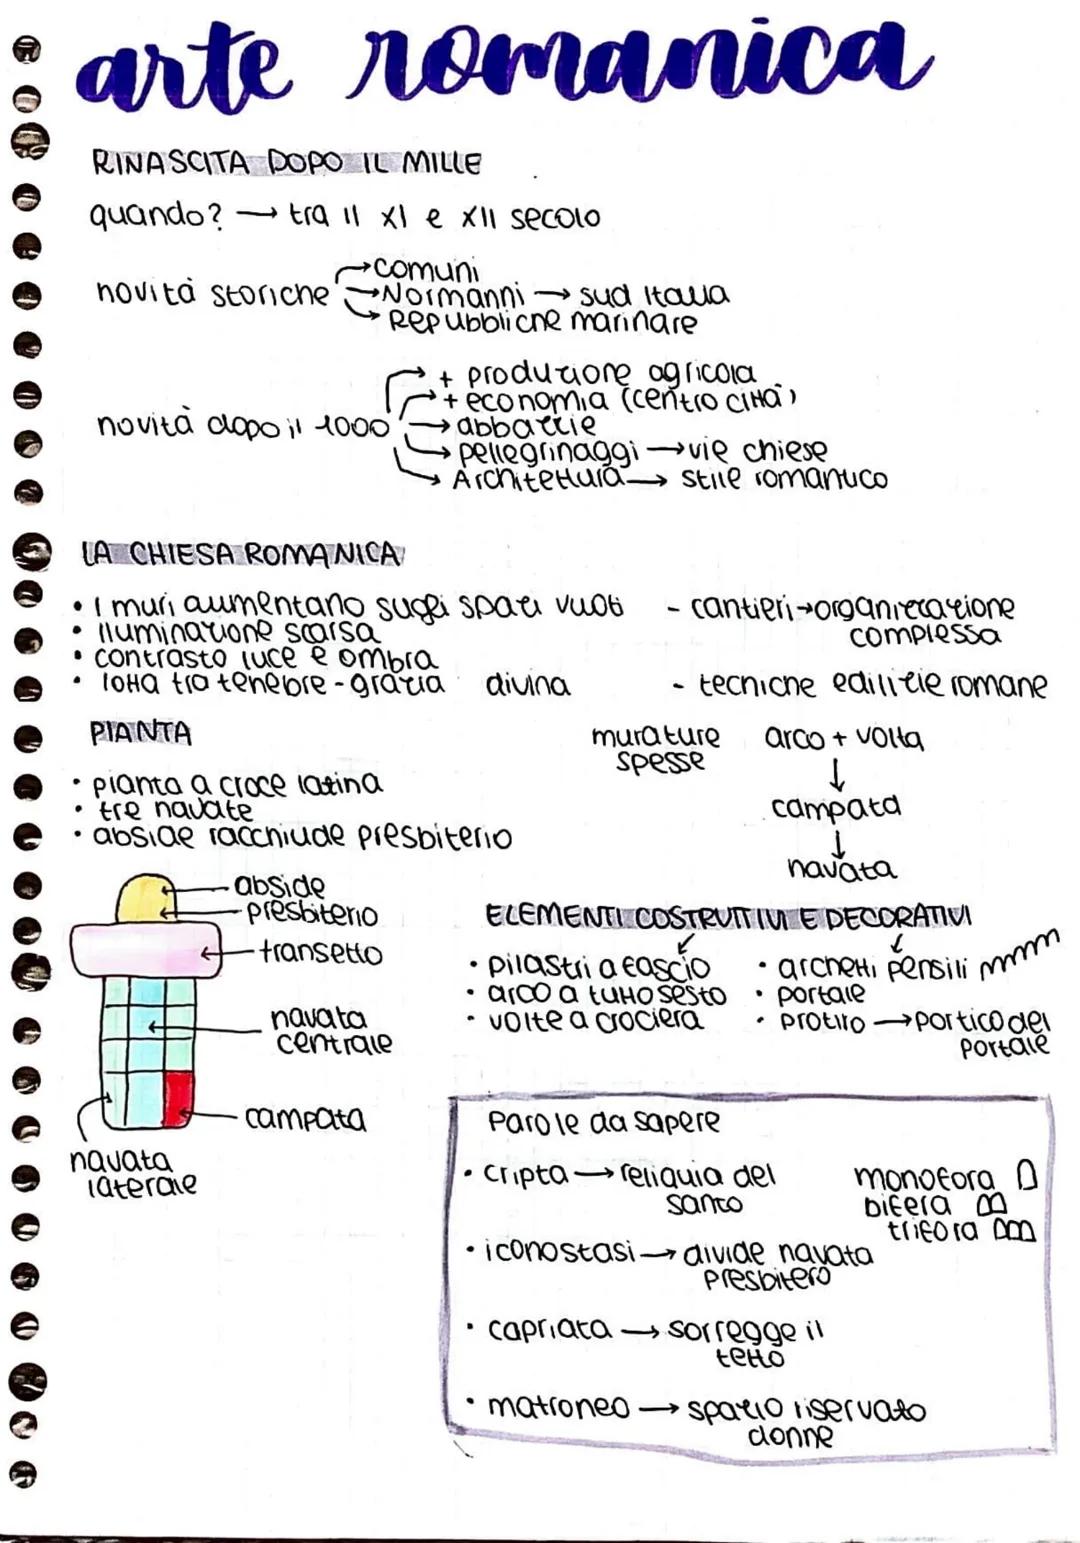 arte romanica
RINASCITA DOPO IL MILLE
quando? → tra il XI e XII secolo
novità storiche
→ comuni
→ Normanni → sud Italia
→ Repubbliche marinare
novità dopo il 1000
→ + produzione agricola
→ + economia (centro città)
→ abbazzie
→ pellegrinaggi → vie chiese
→ Architettura → stile romanuco
LA CHIESA ROMANICA
• I muri aumentano sugli spazi vuoti
• Iluminazione scarsa
• contrasto luce e ombra
• lotta tra tenebre - grazia divina
- cantieri → organizzazione
complessa
- tecniche edilizie romane
murature
spesse
arco + volta
↓
campata
↓
navata
PIANTA
• pianta a croce latina
• tre navate
• abside racchiude presbiterio
abside
presbiterio
transetto
navata
centrale
campata
navata
laterale
ELEMENTI COSTRUTTIVI E DECORATIVI
• pilastri a fascio
• arco a tutto sesto
• volte a crociera
• archetti pensili
• portale
• protiro → portico del
portale
Parole da sapere
• cripta → reliquia del
santo
monofora
bifera
trifora
• iconostasi → divide navata
presbitero
• capriata → sorregge il
tetto
• matroneo → spazio riservato
donne